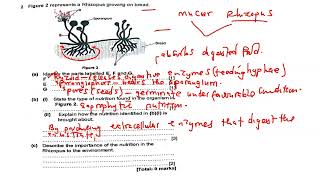 2 Figure 2 represents a Rhizopus growing on bread.
mucor Rhizopus
Sporangium
absorbs digested food.
Bread
Figure 2
(a) Identify the parts labelled E, F and G.
rhizoid - releases digestive enzymes (feeding hyphae)
F sporangiophore - bears the sporangium.
G spores (seeds) - germinate under favourable condition.
(b) (i) State the type of nutrition found in the organism in
Figure 2. Saprophytic nutrition. [1]
(ii) Explain how the nutrition identified in (b)(i) is
brought about.
By producing extracellular enzymes that digest the
substrate. [2]
(c) Describe the importance of the nutrition in the
Rhizopus to the environment.
[Total: 9 marks]